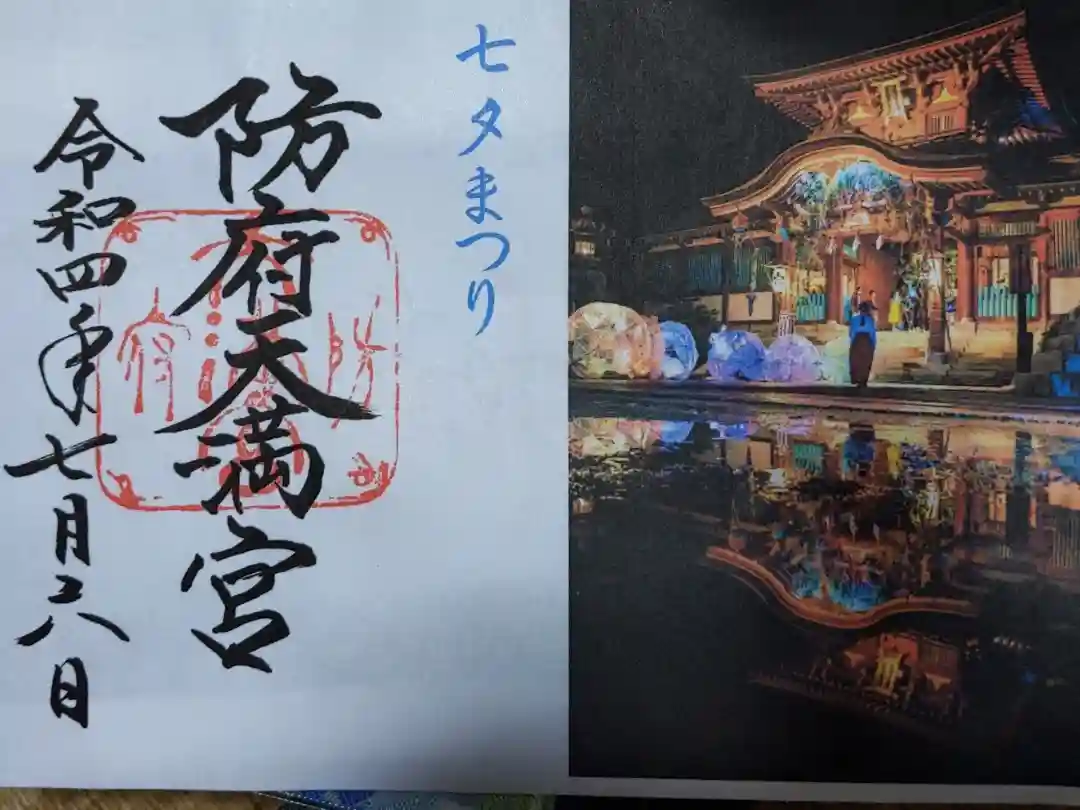 七夕まつり
防府天満宮
令和四年七月六日